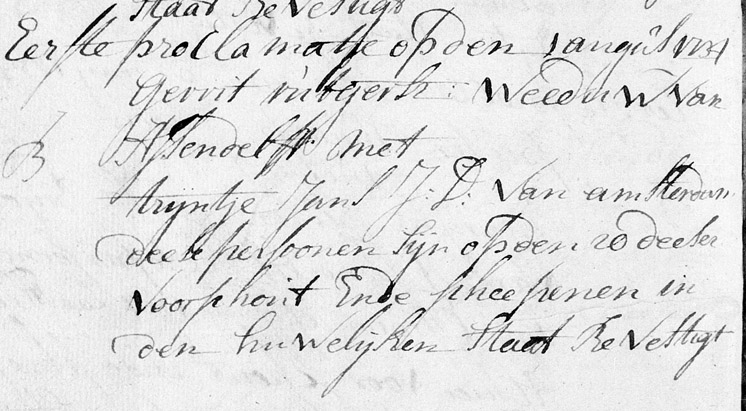 Staat Bevestigt
Eerste proclamatje op den 1 augus 1731
Gerrit rutgerse: Weeduw Van
B Assendelft met
trijntje Jans J: D: Van amsterdam
deese persoonen sijn op den 20 deeser
Voor schout Ende scheepenen in
den huwelijken staat Bevestigt